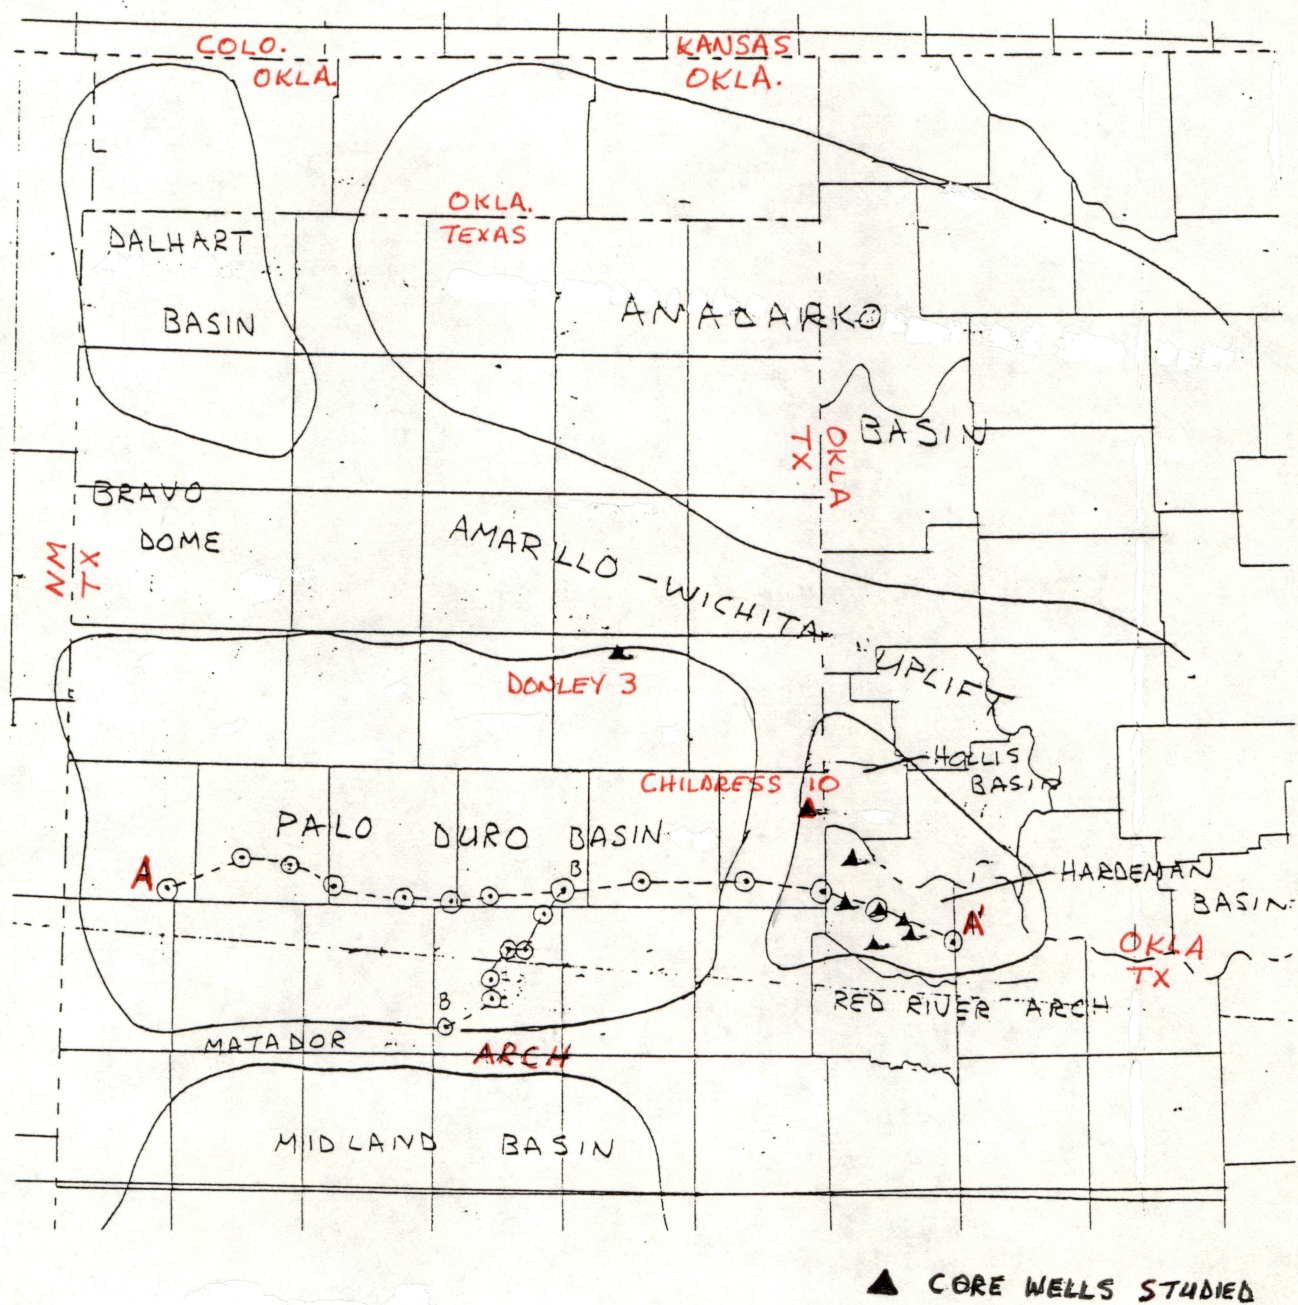 COLO.
OKLA.
KANSAS
OKLA.
OKLA.
TEXAS
DALHART
BASIN
ANADARKO
BASIN
TX
OKLA
BRAVO
DOME
NM
TX
AMARILLO - WICHITA
UPLIFT
DONLEY 3
HOLLIS
BASIN
CHILDRESS 10
PALO DURO BASIN
A
B
HARDEMAN
BASIN
A'
OKLA
TX
B
RED RIVER ARCH
MATADOR
ARCH
MIDLAND BASIN
CORE WELLS STUDIED